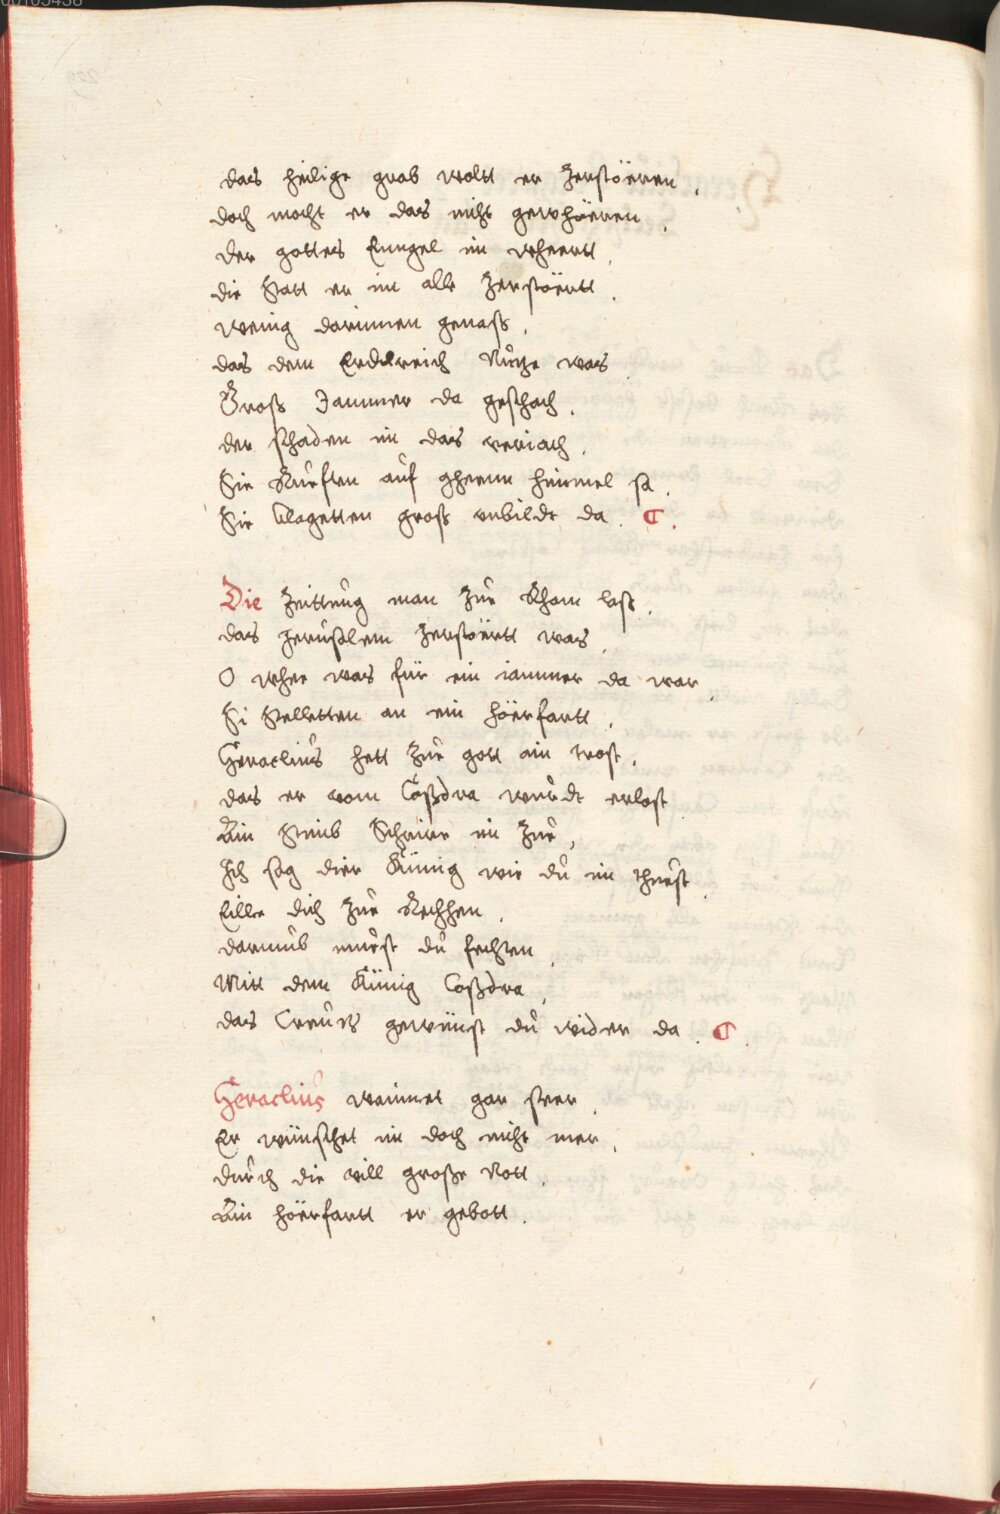 das heilige grab woltt er Zerstöeren .
doch mocht er das nicht gewhöeren .
der gottes Enngel im wheertt .
die Statt er im alle Zerstöertt .
wenig darinnen genaß .
das dem Erdtrreich Nutze was .
Groß Jammer da geschach .
der schaden im das verjach .
Sie Rueften auf gheenn himmel sa .
Sie klagetten groß vnbildt da . C .
Die Zeittung man Zue Rhom laß .
das Jerusalem Zerstöertt was .
O whee was für ein iammer da war .
Si stelletten an ein höerfartt .
Heraclius hett Zue gott ain trost .
das er vom Coßdra wurdt erlost
Ain Stimb Schrier im Zue ,
Ich sag dier Künig wie du im thuest .
Eille dich Zue Rechhen .
darumb muest du fechten ,
Mitt dem Künig Coßdra ,
das Creutz gewünst du wider da . C .
Heraclius wainnet gar seer .
Er wünschet im doch nicht mer .
durch die vill große Nott .
Ain höerfartt er gebott .